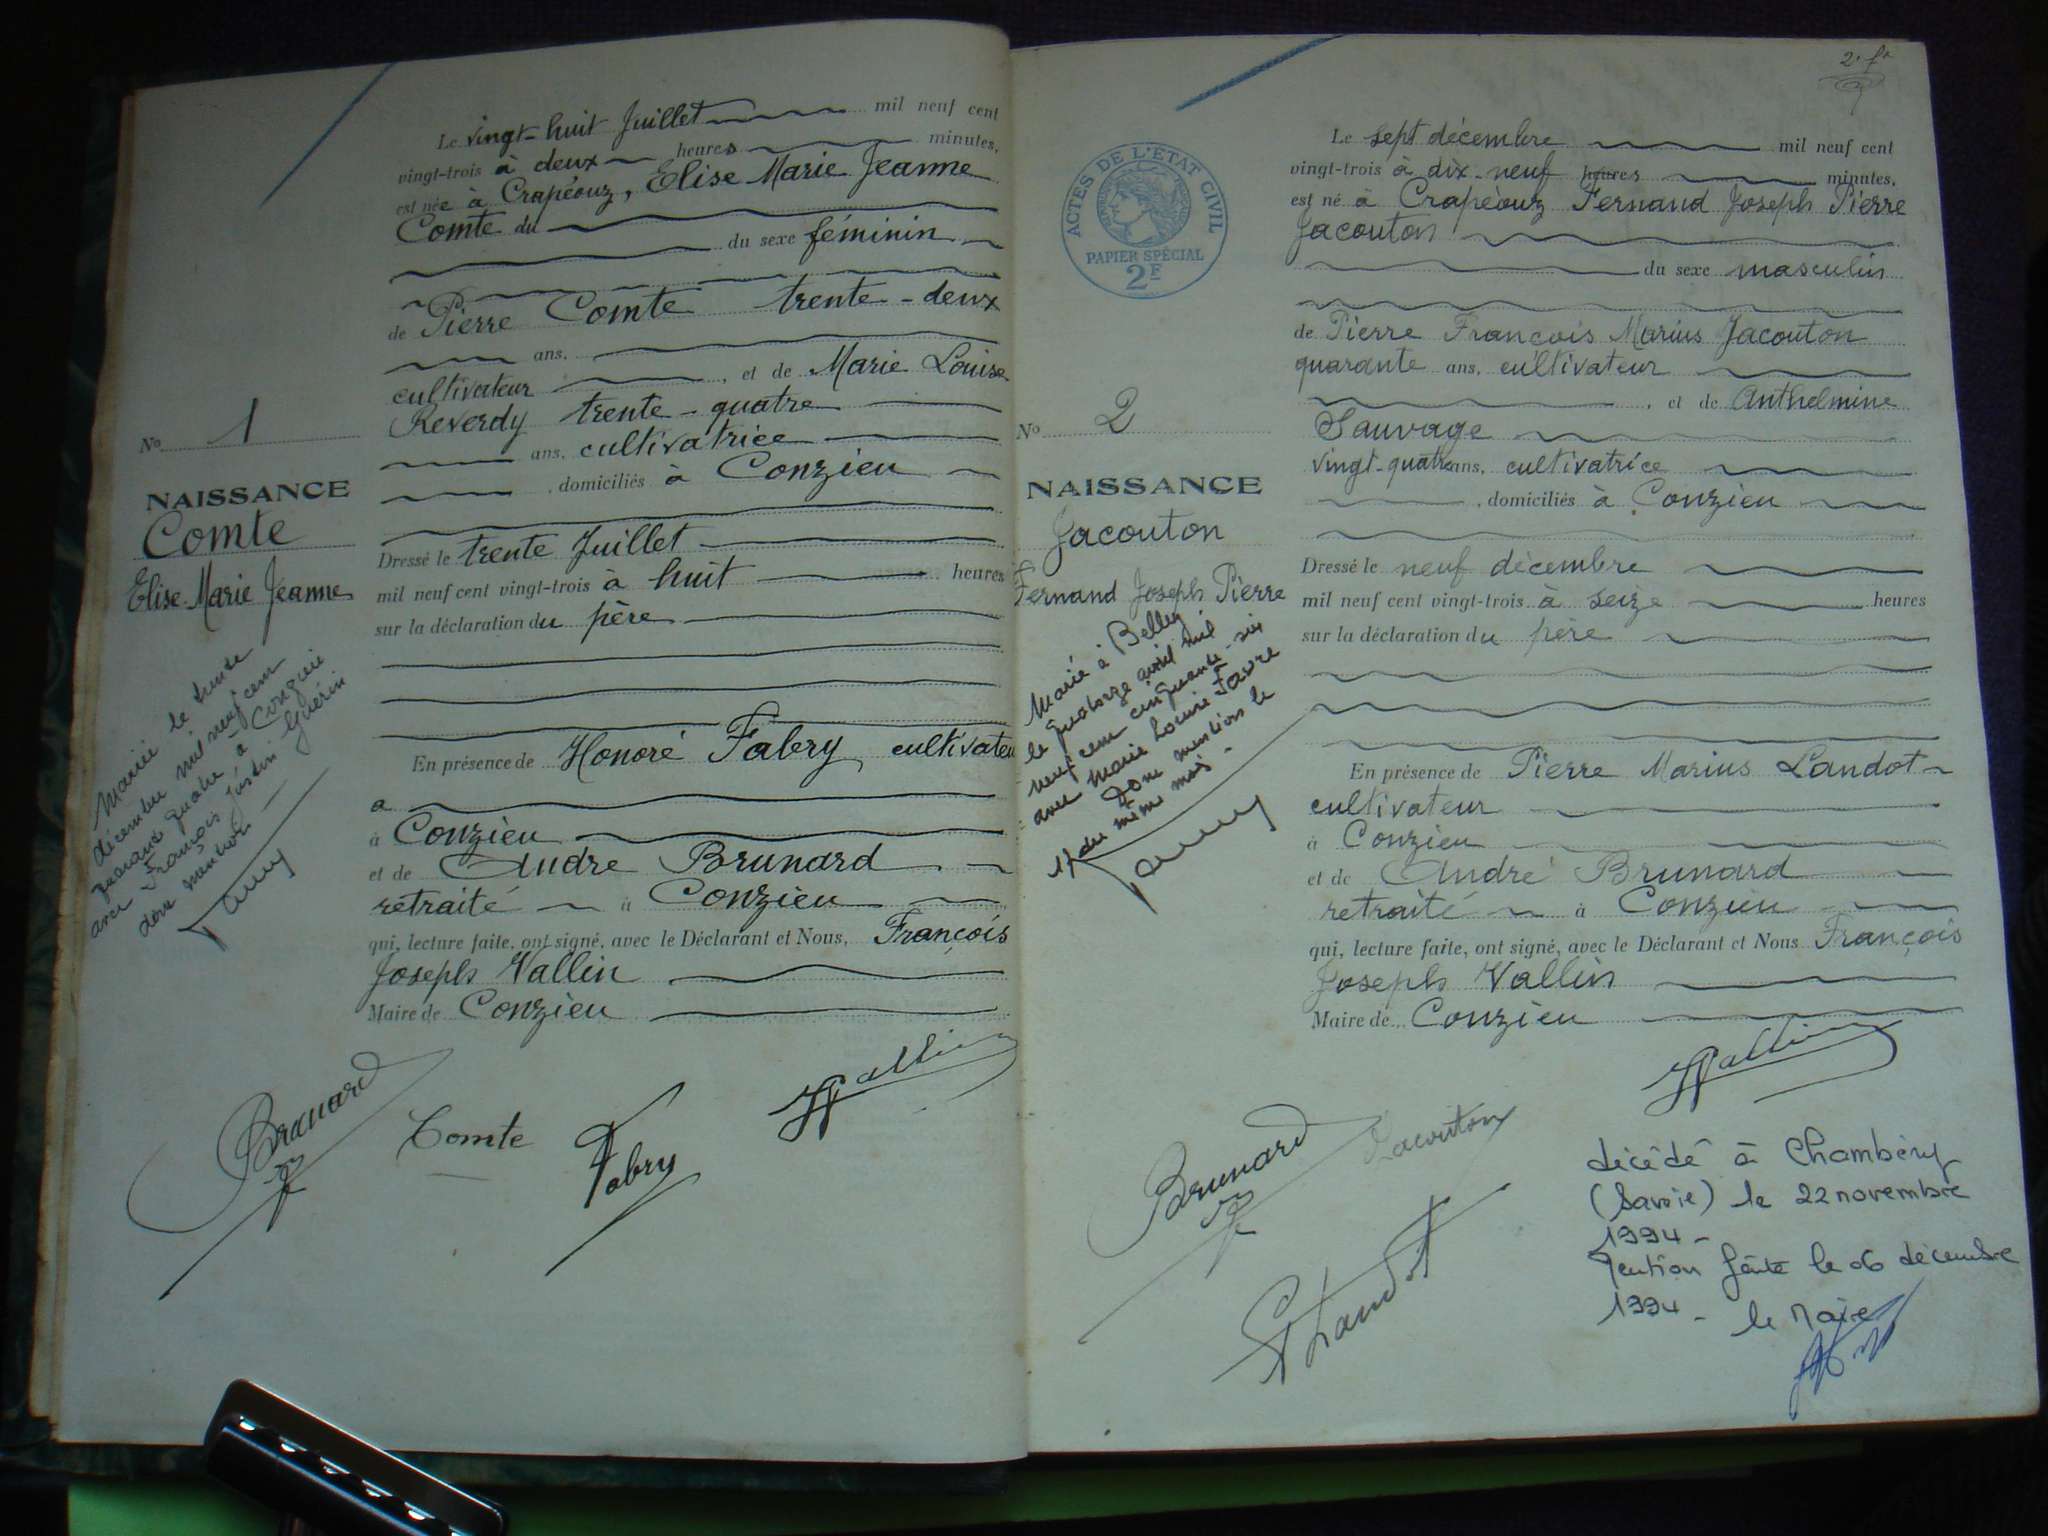 Le vingt-huit Juillet mil neuf cent
vingt-trois à deux heures minutes,
est née à Crapéouz, Elise Marie Jeanne
Comte du
du sexe féminin
de Pierre Comte trente-deux
ans,
cultivateur , et de Marie Louise
Reverdy trente-quatre
ans, cultivatrice
, domiciliés à Conzieu
Dressé le trente Juillet
mil neuf cent vingt-trois à huit heures
sur la déclaration du père
En présence de Honoré Fabry cultivateu
a
à Conzieu
et de André Brunard
retraité à Conzieu
qui, lecture faite, ont signé, avec le Déclarant et Nous, François
Joseph Vallin
Maire de Conzieu
Brunard
Comte
Fabry
Vallin
No 1
NAISSANCE
Comte
Elise Marie Jeanne
Mariée le trente
décembre mil neuf cent
quarante quatre à Conzieu
avec François Justin Guérin
dont mention
2. f.
ACTES DE L'ETAT CIVIL
PAPIER SPÉCIAL
2F
No 2
NAISSANCE
Jacouton
Fernand Joseph Pierre
Marié à Belley
le quatorze avril mil
neuf cent cinquante-six
avec Marie Louise Favre
Dont mention le
17 du même mois -
Le sept décembre mil neuf cent
vingt-trois à dix-neuf heures minutes,
est né à Crapéouz Fernand Joseph Pierre
Jacouton
du sexe masculin
de Pierre François Marius Jacouton
quarante ans, cultivateur
, et de Anthelmine
Sauvage
vingt-quatre ans, cultivatrice
, domiciliés à Conzieu
Dressé le neuf décembre
mil neuf cent vingt-trois à seize heures
sur la déclaration du père
En présence de Pierre Marius Landot
cultivateur
à Conzieu
et de André Brunard
retraité à Conzieu
qui, lecture faite, ont signé, avec le Déclarant et Nous François
Joseph Vallin
Maire de Conzieu
Vallin
Brunard
Jacouton
Landot
décédé à Chambéry
(Savoie) le 22 novembre
1994 -
Mention faite le 06 décembre
1994 - le Maire